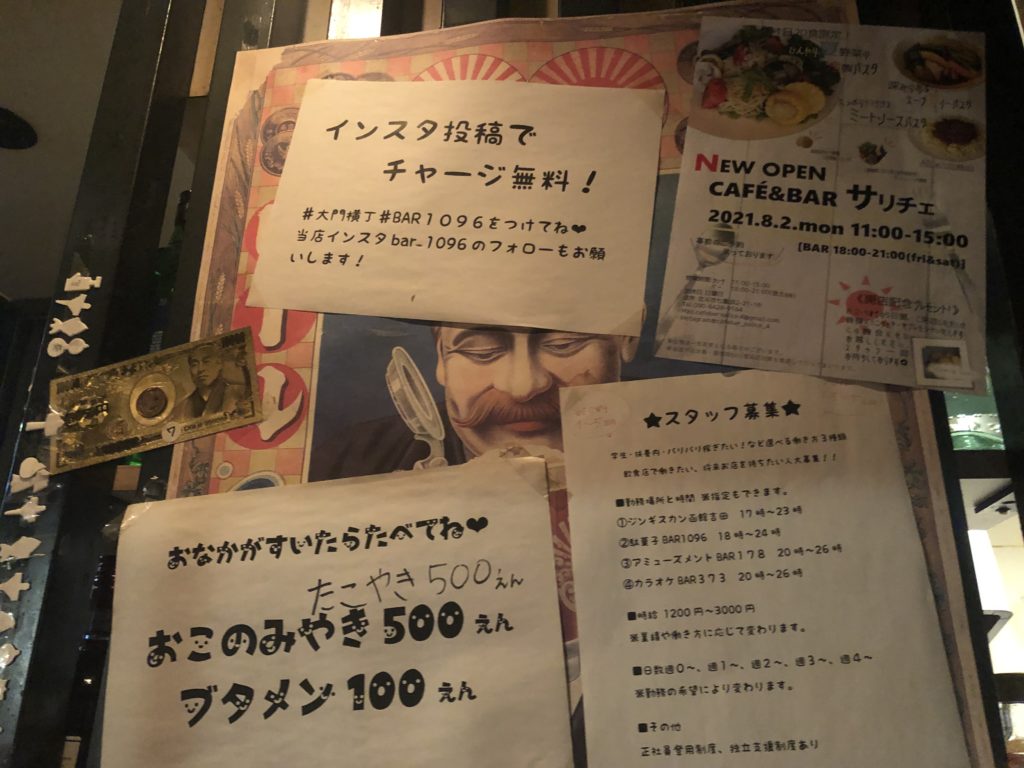 インスタ投稿で
チャージ無料！
＃大門横丁＃BAR１０９６をつけてね♥
当店インスタbar_1096のフォローもお願
いします！
ミートソースパスタ
NEW OPEN
CAFÉ&BAR サリチェ
2021.8.2.mon 11:00-15:00
[BAR 18:00-21:00(fri&sat)]
おなかがすいたらたべてね♥
たこやき500えん
おこのみやき500えん
ブタメン100えん
★スタッフ募集★
学生・扶養内・バリバリ稼ぎたい！など選べる働き方３種類
飲食店で働きたい、将来お店を持ちたい人大募集！！
■勤務場所と時間 ※指定もできます。
①ジンギスカン函館吉田 17時～23時
②駄菓子BAR1096 18時～24時
③アミューズメントBAR１７８ 20時～26時
④カラオケBAR３７３ 20時～26時
■時給 1200円～3000円
※業績や働き方に応じて変わります。
■日数週０～、週１～、週２～、週３～、週４～
※勤務の希望により変わります。
■その他
正社員登用制度、独立支援制度あり